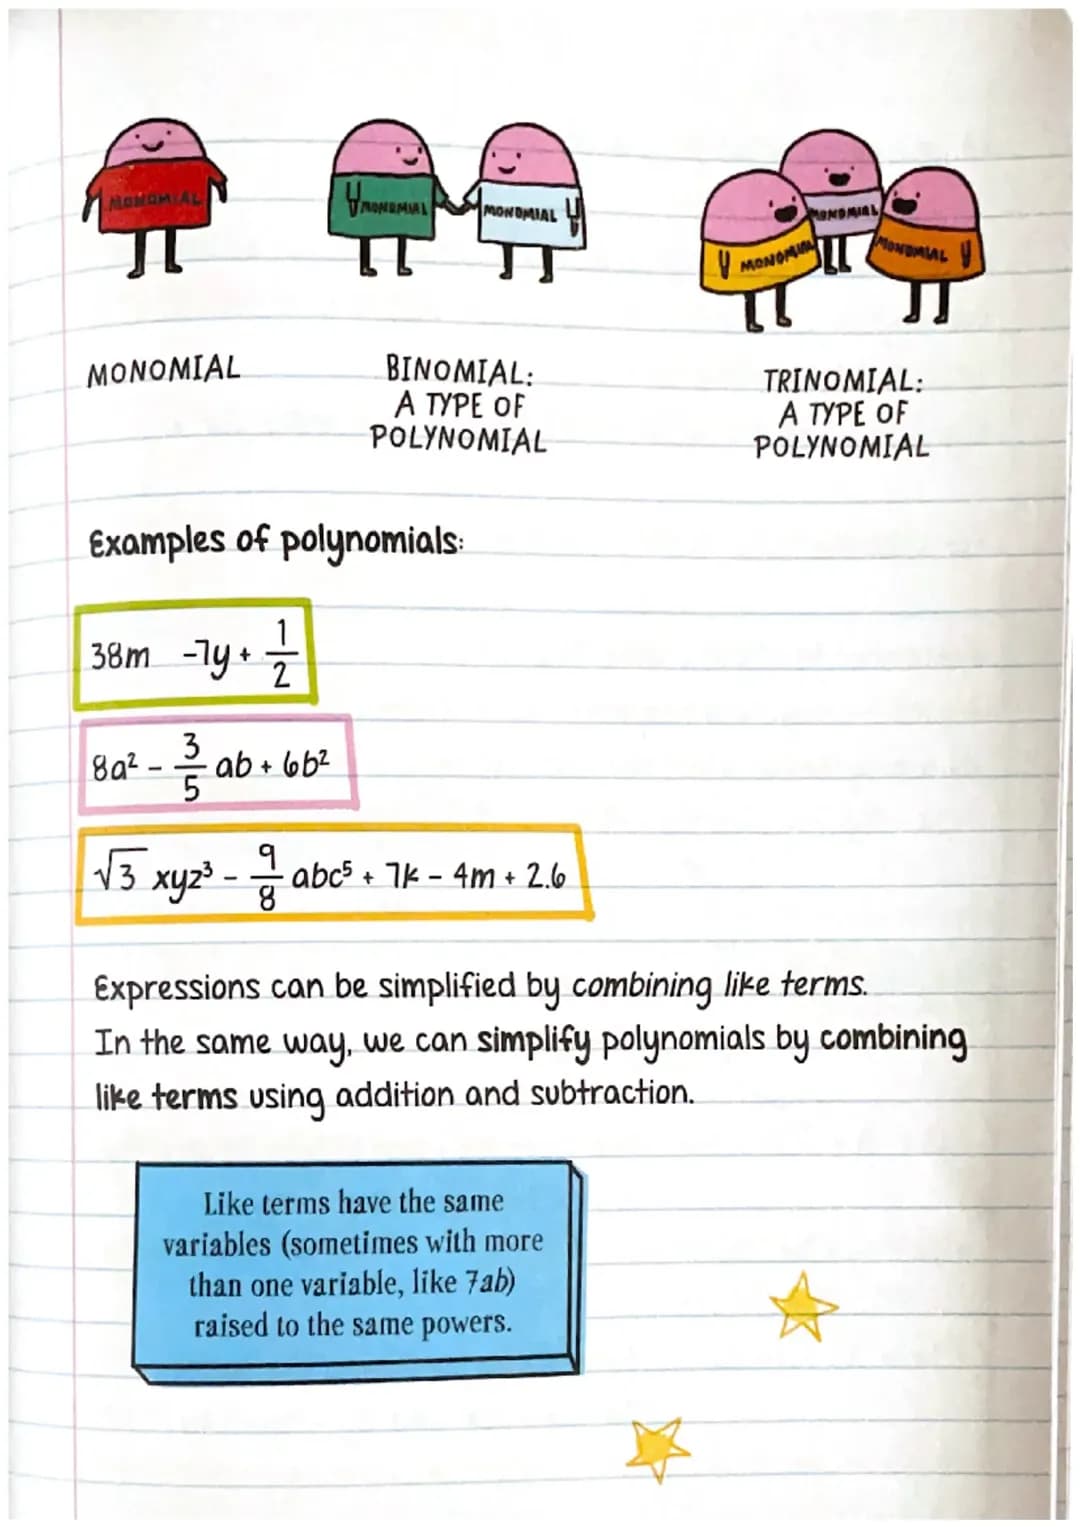 MONOMIAL
MONOMIAL
MONOMIAL
MONOMIAL
MONOMIAL
MONOMIAL
MONOMIAL
BINOMIAL:
A TYPE OF
POLYNOMIAL
TRINOMIAL:
A TYPE OF
POLYNOMIAL
Examples of polynomials:
38m -7y + 1/2
8a² - 3/5 ab + 6b²
√3 xyz³ - 9/8 abc⁵ + 7k - 4m + 2.6
Expressions can be simplified by combining like terms.
In the same way, we can simplify polynomials by combining
like terms using addition and subtraction.
Like terms have the same
variables (sometimes with more
than one variable, like 7ab)
raised to the same powers.